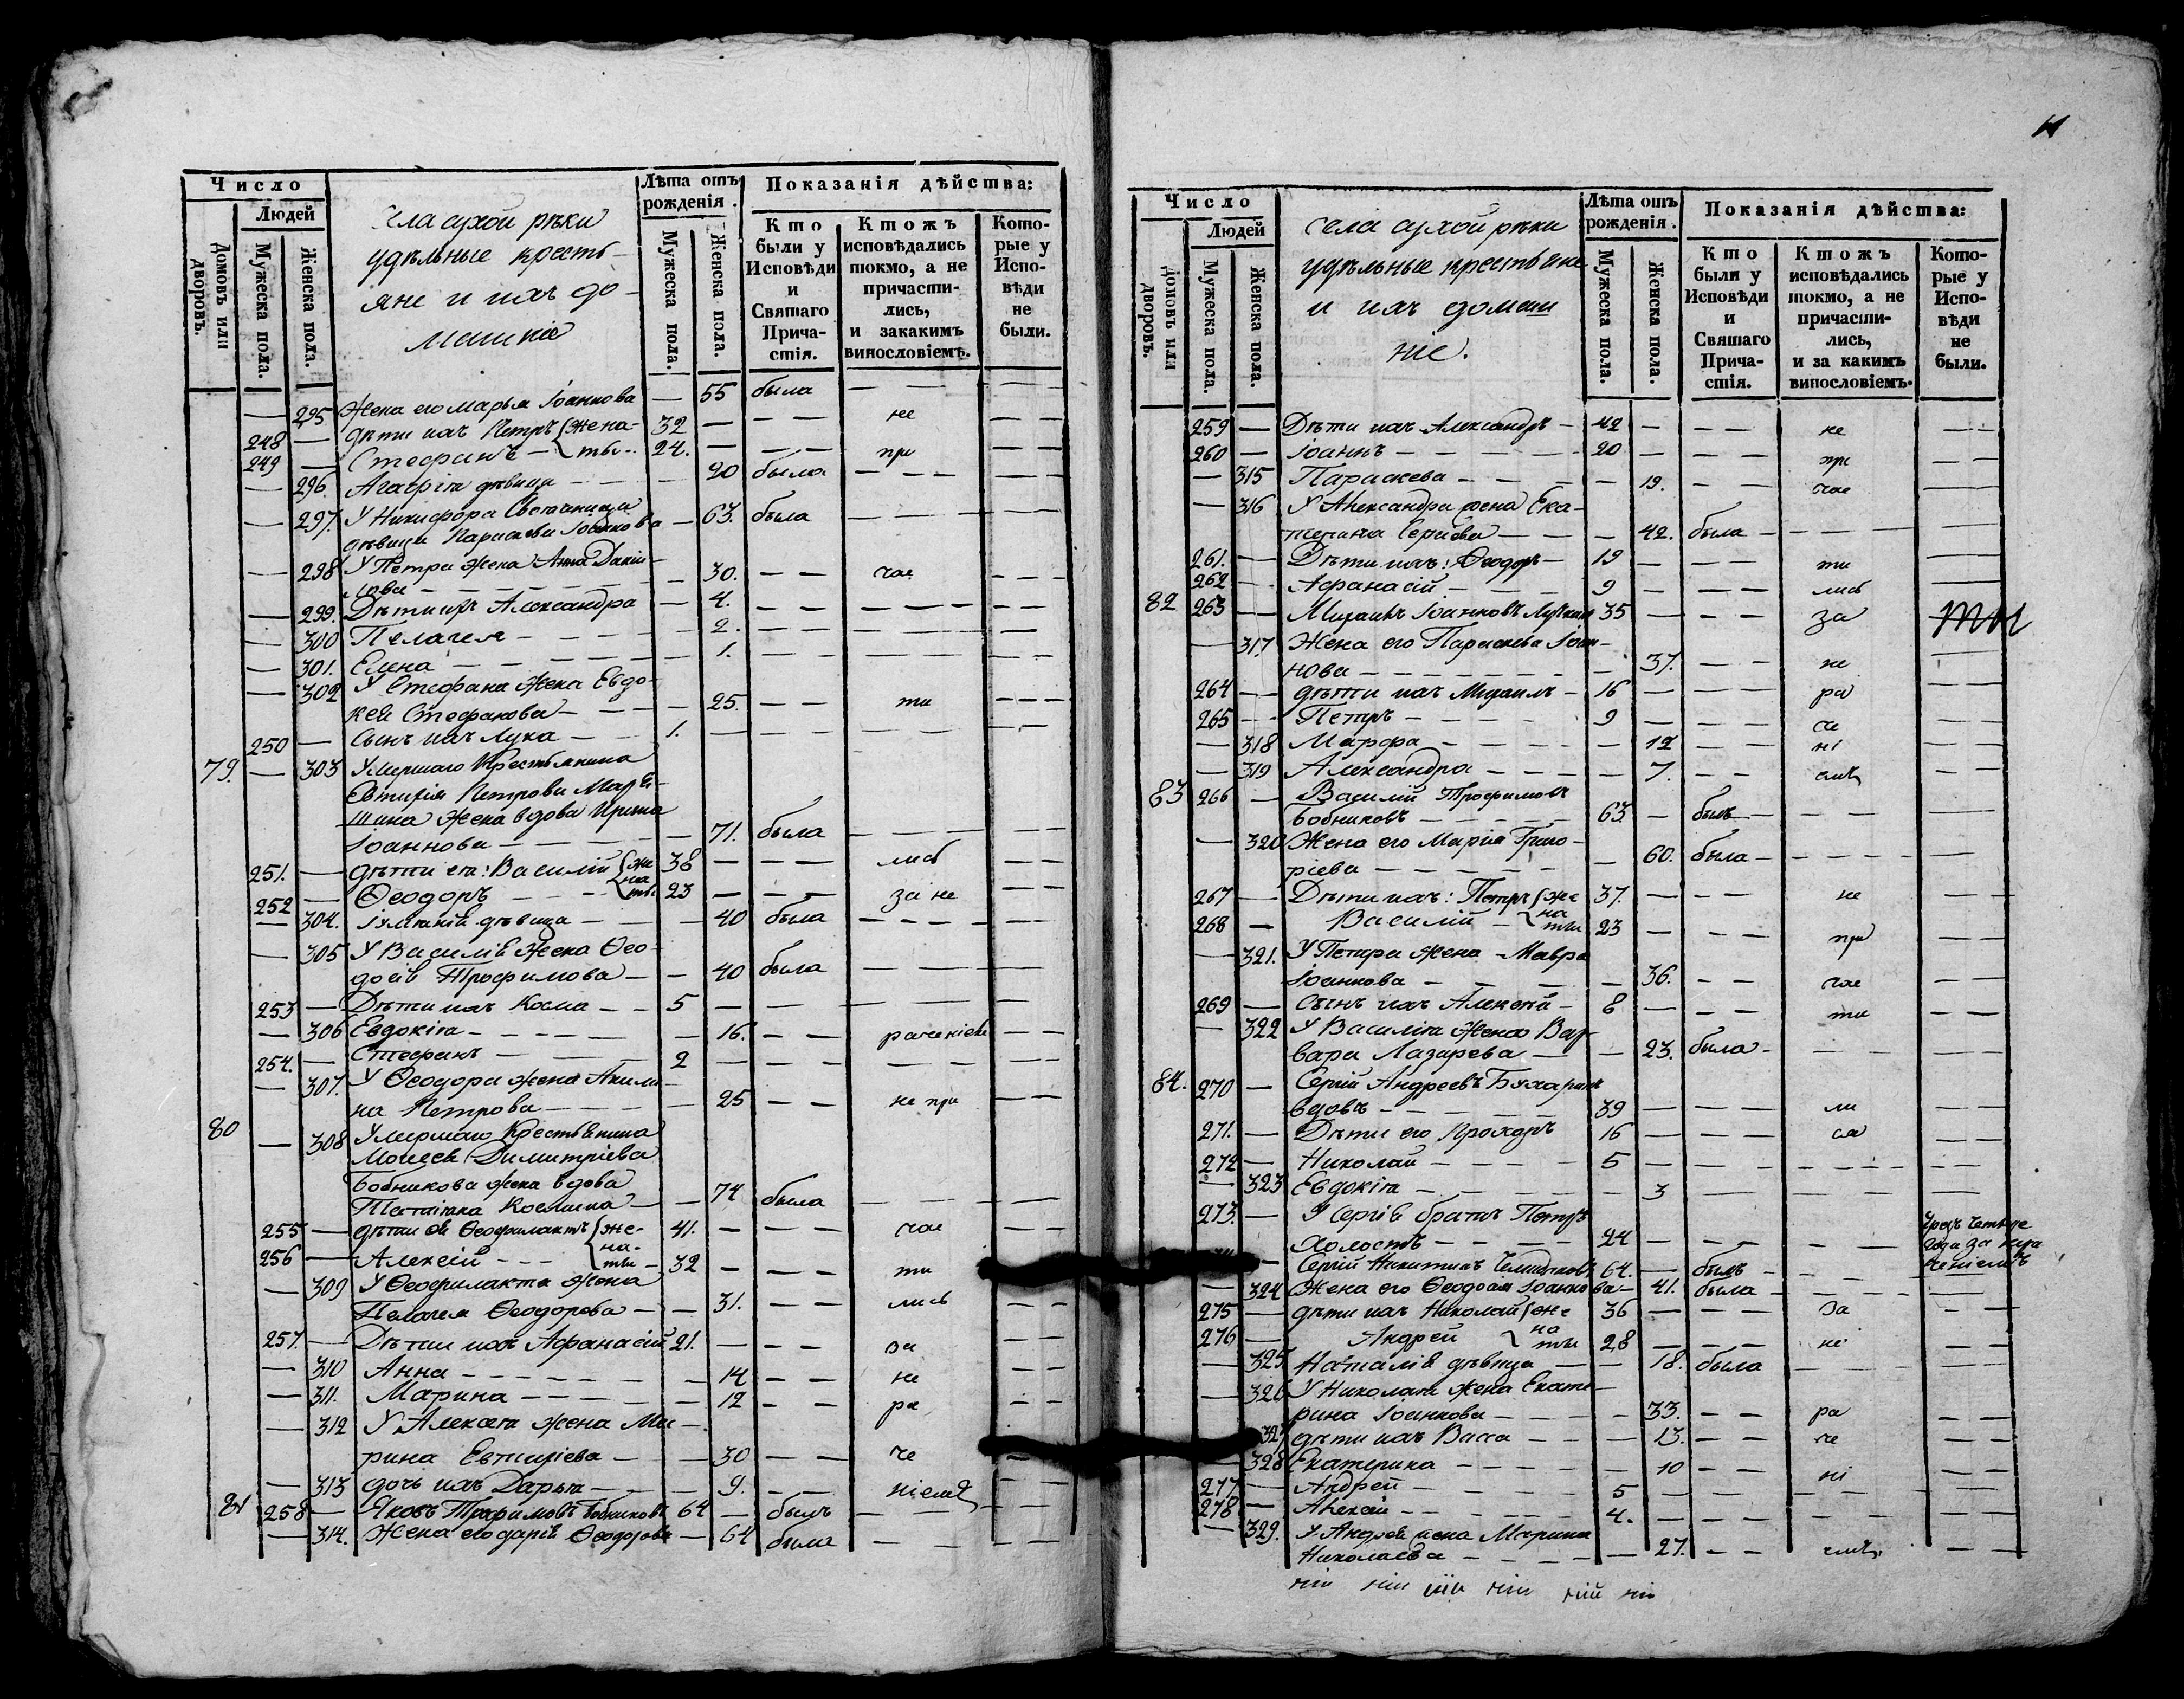 Число
Людей
Домовъ или дворовъ.
Мужеска пола.
Женска пола.
Села сухой рѣки
удѣльные кресть-
яне и ихъ до-
машніе
Лѣта отъ рожденія.
Мужеска пола.
Женска пола.
Показанія дѣйства:
Кто были у Исповѣди и Святаго Прича-стія.
Ктожъ исповѣдались токмо, а не причасти-лись, и закакимъ винословіемъ.
Кото-рые у Испо-вѣди не были.
— 295 Жена его Марья Іоаннова — 55 была — — — —
248 — Дѣти ихъ Петръ { жена- 32 — — — не — —
249 — Стефанъ — { ты 24. — — — при — —
— 296. Агафія дѣвица — — — 20 была — — — — —
— 297. У Никифора
дѣвица Параскева Іоаннова — 63. была — — — —
— 298 У Петра жена Анна Даніи-
лова — — — — — 30. — — час — — —
— 299. Дѣти ихъ Александра — 4. — — — — — —
— 300 Пелагея — — — — 2. — — — — — —
— 301. Елена — — — — 1. — — — — — —
— 302 У Стефана жена Евдо-
кея Стефанова — — — 25. — — ти — — —
250 — Сынъ ихъ Лука — — 1. — — — — — —
79. — 303 Умершаго Крестьянина
Евтихія Петрова
жена вдова Ирина
Іоаннова — — — — 71. была — — — —
251. — дѣти ея: Василій { же 38 — — — лись — —
252 — Ѳеодоръ — — { на ты 23 — — — за не — —
— 304. Іуліанія дѣвица — — — 40 была — — — —
— 305 У Василія жена Ѳео-
досія Трофимова — — 40 была — — — —
253 — Дѣти ихъ Косма — — 5 — — — — — —
— 306 Евдокія — — — — — 16. — — раченіемъ — —
254. — Стефанъ — — — 2 — — — — — —
— 307. У Ѳеодора жена Акили-
на Петрова — — — — 25 — — не при — —
80 — 308 Умершаго Крестьянина
Моисея Димитріева
Бобникова жена вдова
Татіана Космина — — 74 была — — — —
255 — дѣти ея Ѳеофилактъ { же- 41. — — — час — —
256 — Алексій — — { на- ты — 32 — — — ти — —
— 309 У Ѳеофилакта жена
Пелагея Ѳеодорова — — 31. — — лись — —
257. — Дѣти ихъ Афанасій 21. — — — за — —
— 310 Анна — — — — — — 14 — — не — —
— 311. Марина — — — — 12 — — ра — —
— 312 У Алексея жена Ма-
рина Евтихіева — — 30 — — че — —
— 313 дочь ихъ Дарья — — — 9. — — ніемъ — —
81 258 — Яковъ Трофимовъ Бобниковъ 64 — былъ — —
— 314. Жена его Дарія Ѳеодорова — 64 была — — — —
Число
Людей
Домовъ или дворовъ.
Мужеска пола.
Женска пола.
Села сухой рѣки
удѣльные крестьяне
и ихъ домаш
ніе.
Лѣта отъ рожденія.
Мужеска пола.
Женска пола.
Показанія дѣйства:
Кто были у Исповѣди и Святаго Прича-стія.
Ктожъ исповѣдались токмо, а не причасти-лись, и за какимъ винословіемъ.
Кото-рые у Испо-вѣди не были.
259 — Дѣти ихъ Александръ — 42 — — — не — —
260 — Іоаннъ — — — — 20 — — — при — —
— 315 Параскева — — — — 19. — — час —
— 316 У Александра жена Ека-
терина Сергіева — — — 42. была — — — —
261. — Дѣти ихъ: Ѳеодоръ — 19 — — — ти —
262 — Афанасій — — — 9 — — — лись —
82 263 — Михаилъ Іоанновъ 35 — — — за
— 317 Жена его Параскева Іоан-
нова — — — — — — 37. — — не —
264 — дѣти ихъ Михаилъ — 16 — — — ра —
265 — Петръ — — — — 9 — — — че —
— 318 Марфа — — — — — 12 — — ні — —
— 319 Александра — — — — 7. — — емъ — —
83 266 — Василій Трофимовъ
Бобниковъ — — — — 63. — былъ — — — —
— 320 Жена его Марія Григо-
ріева — — — — — 60. была — — — —
267 — Дѣти ихъ: Петръ { же 37. — — — не — —
268 — Василій — { на ты 23 — — — при — —
— 321. У Петра жена Мавра
Іоаннова — — — — 36. — — час — —
269 — Сынъ ихъ Алексѣй — 8 — — — ти — —
— 322 У Василія жена Вар-
вара Лазарева — — 23. была — — — —
84. 270 — Сергій Андреевъ Бухаринъ
вдовъ — — — — — 39 — — — ли — —
271. — Дѣти его Прохоръ 16 — — — ся — —
272 — Николай — — — — 5 — — — — — —
— 323 Евдокія — — — — 3 — — — —
273. — У Сергія братъ Петръ
холостъ — — — — 24 — — — — — чрезъ четыре
года за нера
ченіемъ
— Сергій Никитинъ 64. — былъ — — —
— 324 Жена его Ѳеодосія Іоаннова — 41. была — — — —
275 — дѣти ихъ Николай { же 36 — — — за — —
276 — Андрей { на ты 28 — — — не — —
— 325 Наталія дѣвица — — 18. была — — — —
— 326 У Николая жена Екате-
рина Іоаннова — — — — 33. — — ра — —
327 дѣти ихъ Васса — — — 13. — — че — —
— 328 Екатерина — — — — — 10 — — ні — —
277 — Андрей — — — — 5 — — — — — —
278 — Алексій — — — — 4. — — — — — —
— 329. У Андрея жена Марина
Николаева — — — — — 27. — — емъ. — —